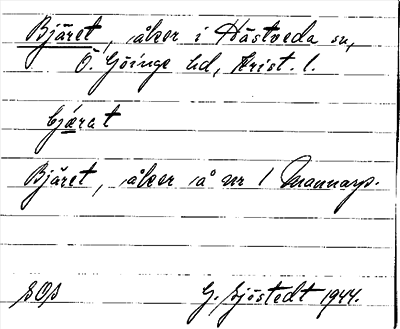 Bjäret, åker i Hästveda sn,
Ö. Göinge hd, Krist. l.
bjærat
Bjäret, åker å nr 1 Mannarp.
SOÞ G. Sjöstedt 1944.